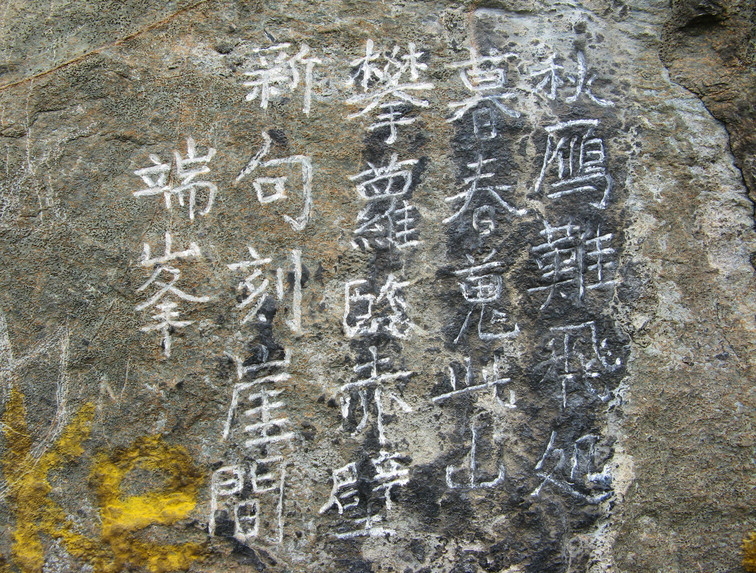 秋鴈難飛処
暮春蒐此山
攀蘿臨赤壁
新句刻崖間
端峯